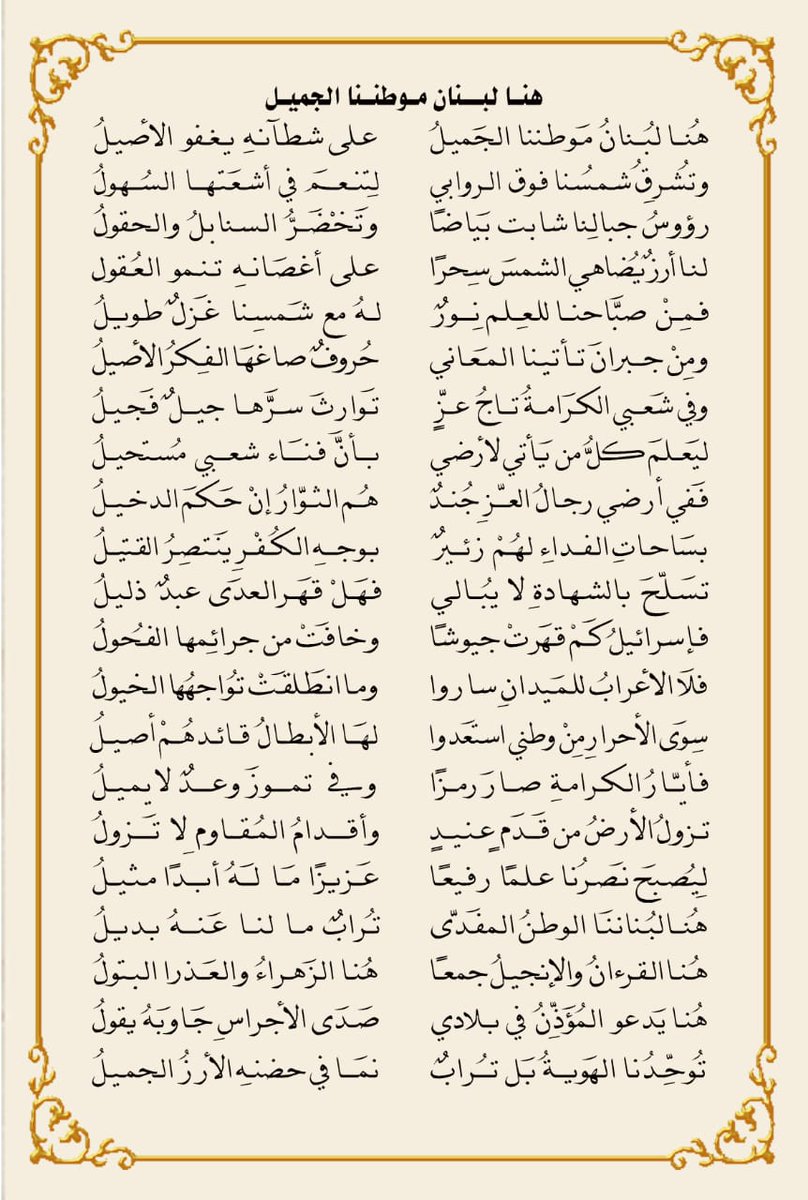 هنا لبنان موطننا الجميل
هُنا لبُنانُ مَوطننا الجَميلُ على شطآنهِ يغفو الأصيلُ
وتُشرِقُ شمسُنا فوق الروابي لِتنعمَ في أشعَتها السُهولُ
رؤوسُ جبالِنا شابت بَيَاضًا وتَخْضَرُّ السنابلُ والحقولُ
لنا أرزٌ يُضاهي الشمسَ سِحرًا على أغصَانهِ تنمو العُقول
فمِنْ صبَّاحنا للعِلم نِورٌ لهُ مع شَمسِنا غَزلٌ طويلُ
ومِنْ جبرانَ تأتينا المعَاني حُروفٌ صاغهَا الفِكرُ الأصيلُ
وفي شعَبي الكرَامةُ تاجُ عزٍّ تَوارثَ سرَّها جيلٌ فَجيلُ
ليَعلمَ كلُّ من يَأتي لأرضي بأنَّ فنَاء شعبي مُستحيلُ
فَفي أرضي رجالُ العزِّ جُندٌ هُم الثوّارُ إنْ حَكمَ الدخيلُ
بسَاحاتِ الفداءِ لهُمْ زئيرٌ بوجهِ الكُفْرِ يَنتصِرُ القتيْلُ
تسَلّحَ بالشهادةِ لا يُبالي فهَلْ قهَر العدَى عبدٌ ذليلُ
فإسرائيلُ كَمْ قهَرتْ جيوشًا وخافَتْ من جرائِمها الفحُولُ
فلَا الأعرابُ للمَيدانِ ساروا وما انطَلقَتْ تُوَاجهُها الخيولُ
سِوَى الأحرارِ مِنْ وطني استعَدوا لهَا الأبطالُ قائدهُمْ أصيلُ
فأيّارُ الكرامةِ صارَ رمزًا وفي تموزَ وعدٌ لا يميلُ
تزولُ الأرضُ من قَدَمٍ عنيدٍ وأقدامُ المُقاومِ لا تَزولُ
لِيُصبحَ نصَرُنا علمًا رفيعًا عَزيزًا مَا لَهُ أبدًا مثيلُ
هُنا لبُناننَا الوطنُ المفدَّى تُرابٌ ما لنا عَنهُ بديلُ
هُنا القرءانُ والإنجيلُ جمعًا هُنا الزهراءُ والعَذرا البتولُ
هُنا يَدعو المُؤَذِّنُ في بلادي صَدَى الأجراسِ جَاوبَهُ يقولُ
تُوحِّدُنا الهَويةُ بَل تُرابٌ نمَا في حضنهِ الأرزُ الجميلُ